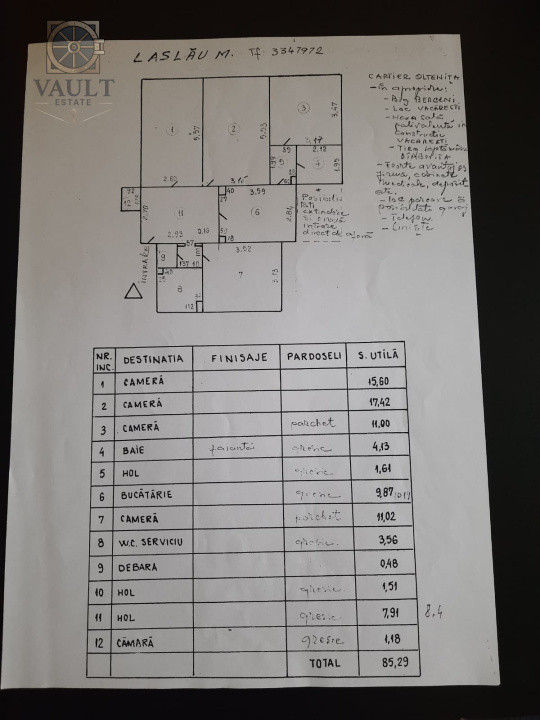 VAULT
ESTATE
LASLĂU M. Tf 3347972
CARTIER OLTENITA
- în apropiere:
- Big BERCENI
- Lac VACARESTI
- Noua sală
polivalentă în
construcție
VACARESTI
- Piro
- Foarte avantaj pt
firmă, cabinete
medicale, depozit
etc.
- loc parcare si
posibilitate garaj
- Telefon
- Liniste
Posibili
tăți
extindere
si o nouă
intrare
direct de afară
INTRARE
1
2
3
5,57
5,53
3,47
2.80
3.15
3.17
2,12
1,95
3.59
2,84
2.93
2.10
3,52
3,13
16
11
7
8
9
NR. INC.	DESTINATIA	FINISAJE	PARDOSELI	S. UTILĂ
1	CAMERĂ	15,60
2	CAMERĂ	17,42
3	CAMERĂ	parchet	11.00
4	BAIE	faianță	gresie	4,13
5	HOL	gresie	1,61
6	BUCĂTĂRIE	gresie	9,87 10.19
7	CAMERĂ	parchet	11,02
8	W.C. SERVICIU	gresie	3,56
9	DEBARA	0,48
10	HOL	gresie	1,51
11	HOL	gresie	7,91 8.4
12	CĂMARĂ	gresie	1,18
TOTAL	85,29